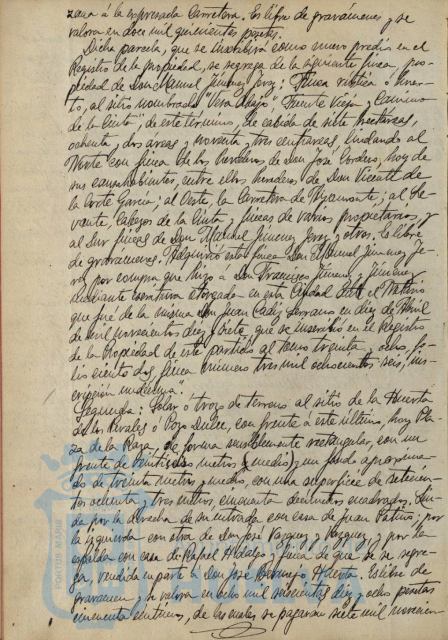 zana á la expresada Carretera. Es libre de gravámenes y se
valora en doce mil quinientas pesetas.
Dicha parcela, que se inscribirá como nuevo predio en el
Registro de la propiedad, se segrega de la siguiente finca, pro-
piedad de Don Manuel Jimenez Jerez: "Finca rústica ó Huer-
to, al sitio nombrado "Vera Abajo", "Fuente Vieja y Camino
de la Cinta" de este término, de cabida de siete hectáreas,
ochenta y dos areas y noventa y tres centiáreas, lindando al
Norte con finca de los herederos de Don José Cordero, hoy de
sus causahabientes, entre ellos herederos de Don Vicente de
la Corte Garcia; al Oeste, la Carretera de Ayamonte; al Le-
vante, Cabezos de la Cinta y fincas de varios propietarios, y
al Sur fincas de Don Manuel Jimenez Jerez y otros. Es libre
de gravámenes. Adquirió esta finca Don Manuel Jimenez Je-
rez por compra que hizo a Don Francisco Jimenez y Jimenez
mediante escritura otorgada en esta Ciudad ante el Notario
que fué de la misma Don Juan Cadiz Serrano en diez de Abril
de mil novecientos diez y siete que se inscribió en el Registro
de la Propiedad de este partido al tomo treinta y ocho, fo-
lio ciento dos, finca número tres mil ochocientos seis, ins-
cripción undécima".
Segunda: Solar ó trozo de terreno al sitio de la Huerta
de los Perales ó Pozo Dulce, con frente á este último, hoy Pla-
za de la Raza, de forma sensiblemente rectangular, con un
frente de veintiseis metros y medio, y un fondo aproxima-
do de treinta metros y medio, con una superficie de setecien-
tos ochenta y tres metros cincuenta decimetros cuadrados. Lin-
da por la derecha de su entrada con casa de Juan Patiño; por
la izquierda con otra de Don José Vazquez y Vazquez, y por la
espalda con casa de Rafael Hidalgo y finca de que se se segre-
ga, vendida en parte á Don José Bermejo Huerta. Es libre de
gravamen y se valora en ocho mil seiscientas diez y ocho pesetas
cincuenta centimos, de las cuales se pagaron siete mil novecien-
PORTUS MARIS